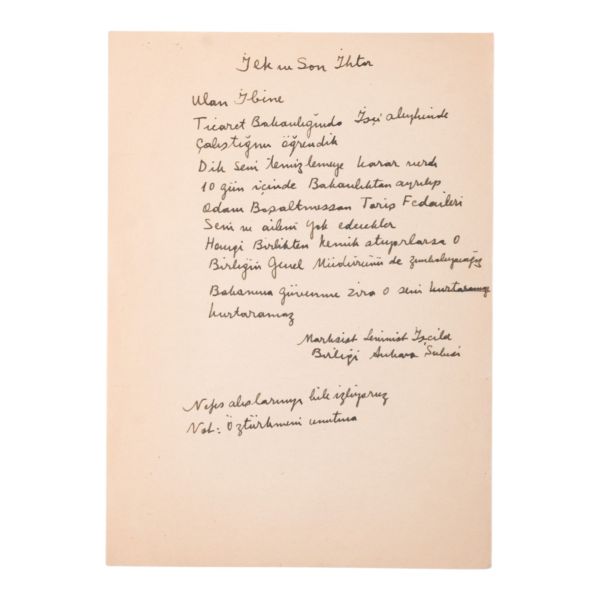 İlk ve Son İhtar
Ulan İbine
Ticaret Bakanlığında İşçi aleyhinde
Çalıştığını öğrendik
Dik seni temizlemeye karar verdi
10 gün içinde Bakanlıktan ayrılıp
Odanı Boşaltmassan Tariş Fedaileri
Seni ve aileni yok edecekler
Hangi Birlikten kemik atıyorlarsa O
Birliğin Genel Müdürünü de zımbalayacağız
Bakanına güvenme zira O seni
kurtaramaz
Marksist Leninist İşçile
Birliği Ankara Şubesi
Nefes alışlarınızı bile izliyoruz
Not: Öztürkmeni unutma